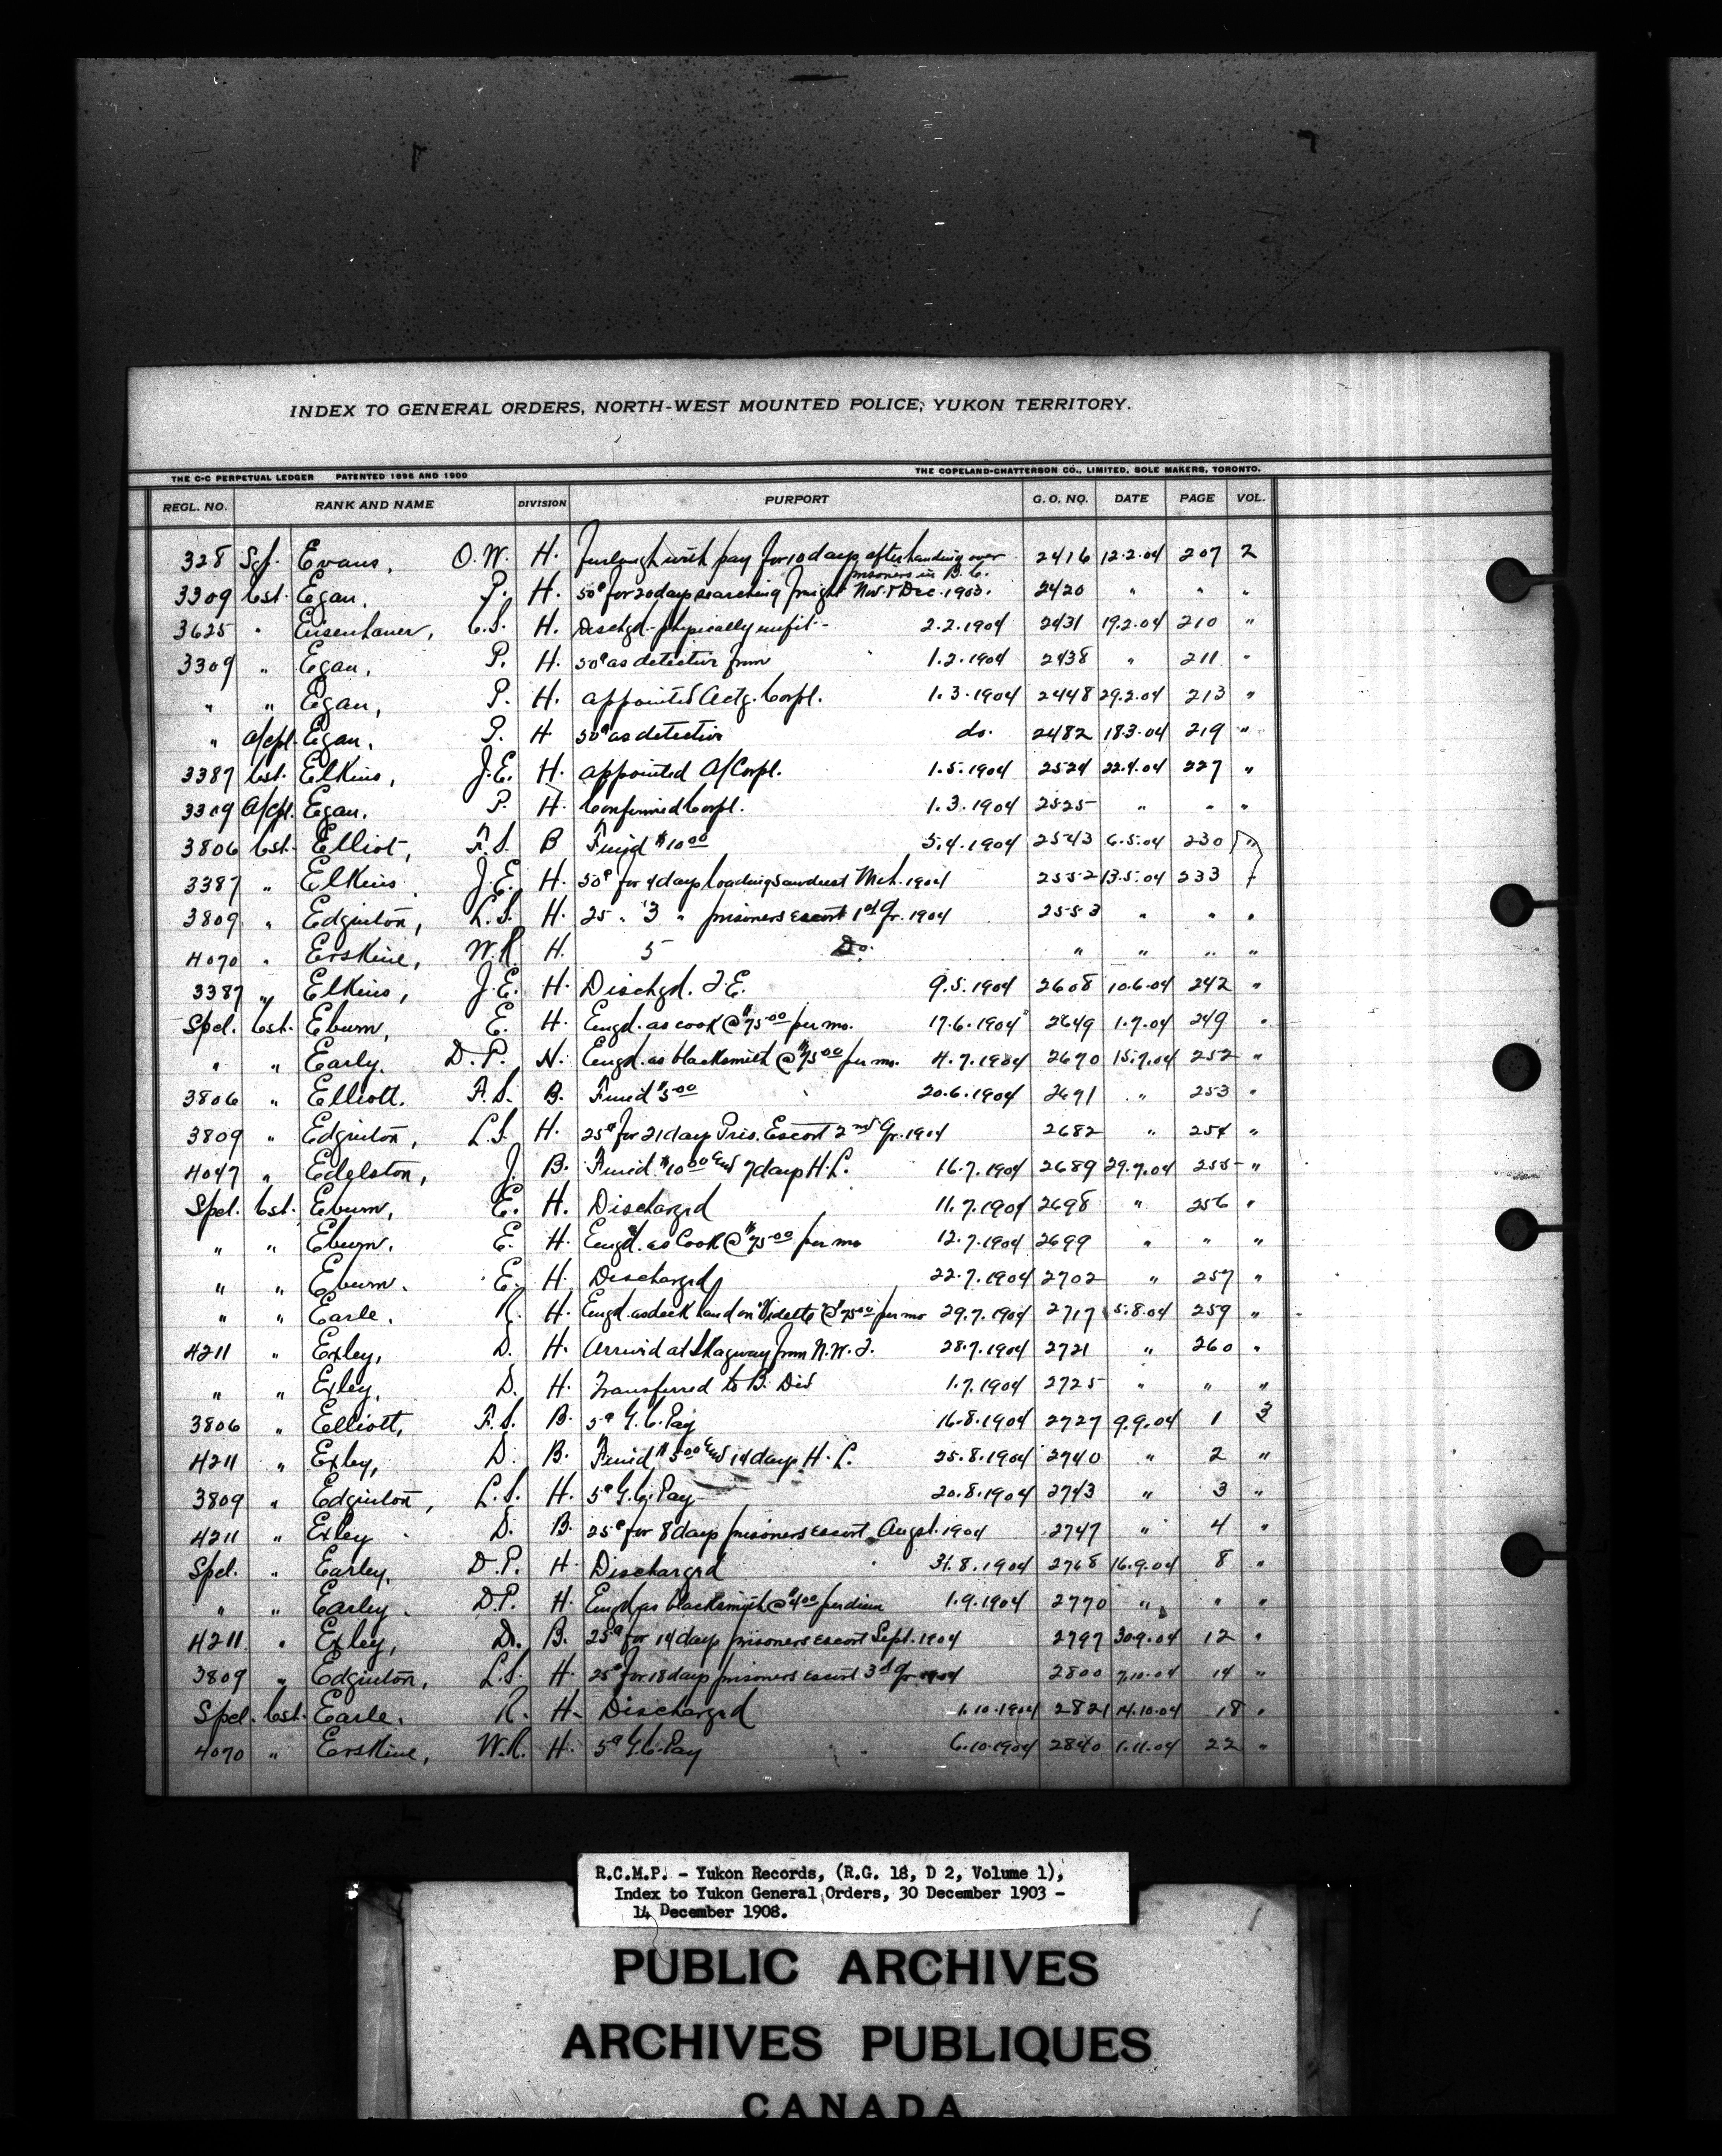 INDEX TO GENERAL ORDERS, NORTH-WEST MOUNTED POLICE, YUKON TERRITORY.
THE C-C PERPETUAL LEDGER PATENTED 1896 AND 1900 THE COPELAND-CHATTERSON CO., LIMITED, SOLE MAKERS, TORONTO.
REGL. NO. RANK AND NAME DIVISION PURPORT G. O. NO. DATE PAGE VOL.
328 Sgt. Evans, O.W. H. Furlough with pay for 10 days after handing over prisoners in B.C. 2416 12.2.04 207 2
3309 Cst. Egan, P. H. 50¢ for 20 days searching freight Nov. & Dec. 1903. 2420 " " "
3625 " Eisenhauer, C.S. H. Dischgd. physically unfit- 2.2.1904 2431 19.2.04 210 "
3309 " Egan, P. H. 50¢ as detective from 1.2.1904 2438 " 211 "
" " Egan, P. H. appointed Actg. Corpl. 1.3.1904 2448 29.2.04 213 "
" A/Cpl. Egan, P. H 50¢ as detective do. 2482 18.3.04 219 "
3387 Cst. Elkins, J.E. H. appointed A/Corpl. 1.5.1904 2524 22.4.04 227 "
3309 A/Cpl. Egan, P. H. Confirmed Corpl. 1.3.1904 2525 " " "
3806 Cst. Elliot, F.S. B Fined $10.00 5.4.1904 2543 6.5.04 230 "
3387 " Elkins. J.E. H. 50¢ for 4 days loading sawdust Mch. 1904 2552 13.5.04 233
3809 " Edginton, L.S. H. 25 " 3 " prisoners escort 1st Qr. 1904 2553 " " "
4070 " Erskine, W.R. H. 5 Do. " " " "
3387 " Elkins, J.E. H. Dischgd. T.E. 9.5.1904 2608 10.6.04 242 "
Spel. Cst. Eburn, E. H. Engd. as cook @ $75.00 per mo. 17.6.1904 2649 1.7.04 249 "
" " Early. D.P. H. Engd. as blacksmith @ $75.00 per mo. 4.7.1904 2670 15.7.04 252 "
3806 " Elliott. F.S. B. Fined $5.00 20.6.1904 2671 " 253 "
3809 " Edginton, L.S. H. 25¢ for 21 days Pris. Escort 2nd Qr. 1904 2682 " 254 "
4047 " Edelston, J. B. Fined $10.00 and 7 days H.L. 16.7.1904 2689 29.7.04 255 "
Spel. Cst. Eburn, E. H. Discharged 11.7.1904 2698 " 256 "
" " Eburn. E. H. Engd. as Cook @ $75.00 per mo 12.7.1904 2699 " " "
" " Eburn. E. H. Discharged 22.7.1904 2702 " 257 "
" " Earle. R. H. Engd. as deck hand on "Vidette" @ $75.00 per mo 29.7.1904 2717 5.8.04 259 "
4211 " Exley, D. H. Arrived at Skagway from N.W.T. 28.7.1904 2721 " 260 "
" " Exley, D. H. Transferred to B. Div 1.7.1904 2725 " " "
3806 " Elliott, F.S. B. 5¢ G.C. Pay 16.8.1904 2727 9.9.04 1 3
4211 " Exley, D. B. Fined $5.00 and 14 days H.L. 25.8.1904 2740 " 2 "
3809 " Edginton, L.S. H. 5¢ G.C. Pay 20.8.1904 2743 " 3 "
4211 " Exley D. B. 25¢ for 8 days prisoners escort Augst. 1904 2747 " 4 "
Spel. " Earley, D.P. H. Discharged 31.8.1904 2768 16.9.04 8 "
" " Earley. D.P. H. Engd as blacksmith @ $4.00 per diem 1.9.1904 2770 " " "
4211 " Exley, D. B. 25¢ for 14 days prisoners escort Sept. 1904 2797 30.9.04 12 "
3809 " Edginton, L.S. H. 25¢ for 18 days prisoners escort 3rd Qr. 1904 2800 7.10.04 14 "
Spel. Cst. Earle. R. H. Discharged 1.10.1904 2821 14.10.04 18 "
4070 " Erskine, W.R. H. 5¢ G.C. Pay 6.10.1904 2840 1.11.04 22 "
R.C.M.P. - Yukon Records, (R.G. 18, D 2, Volume 1),
Index to Yukon General Orders, 30 December 1903 -
14 December 1908.
PUBLIC ARCHIVES
ARCHIVES PUBLIQUES
CANADA